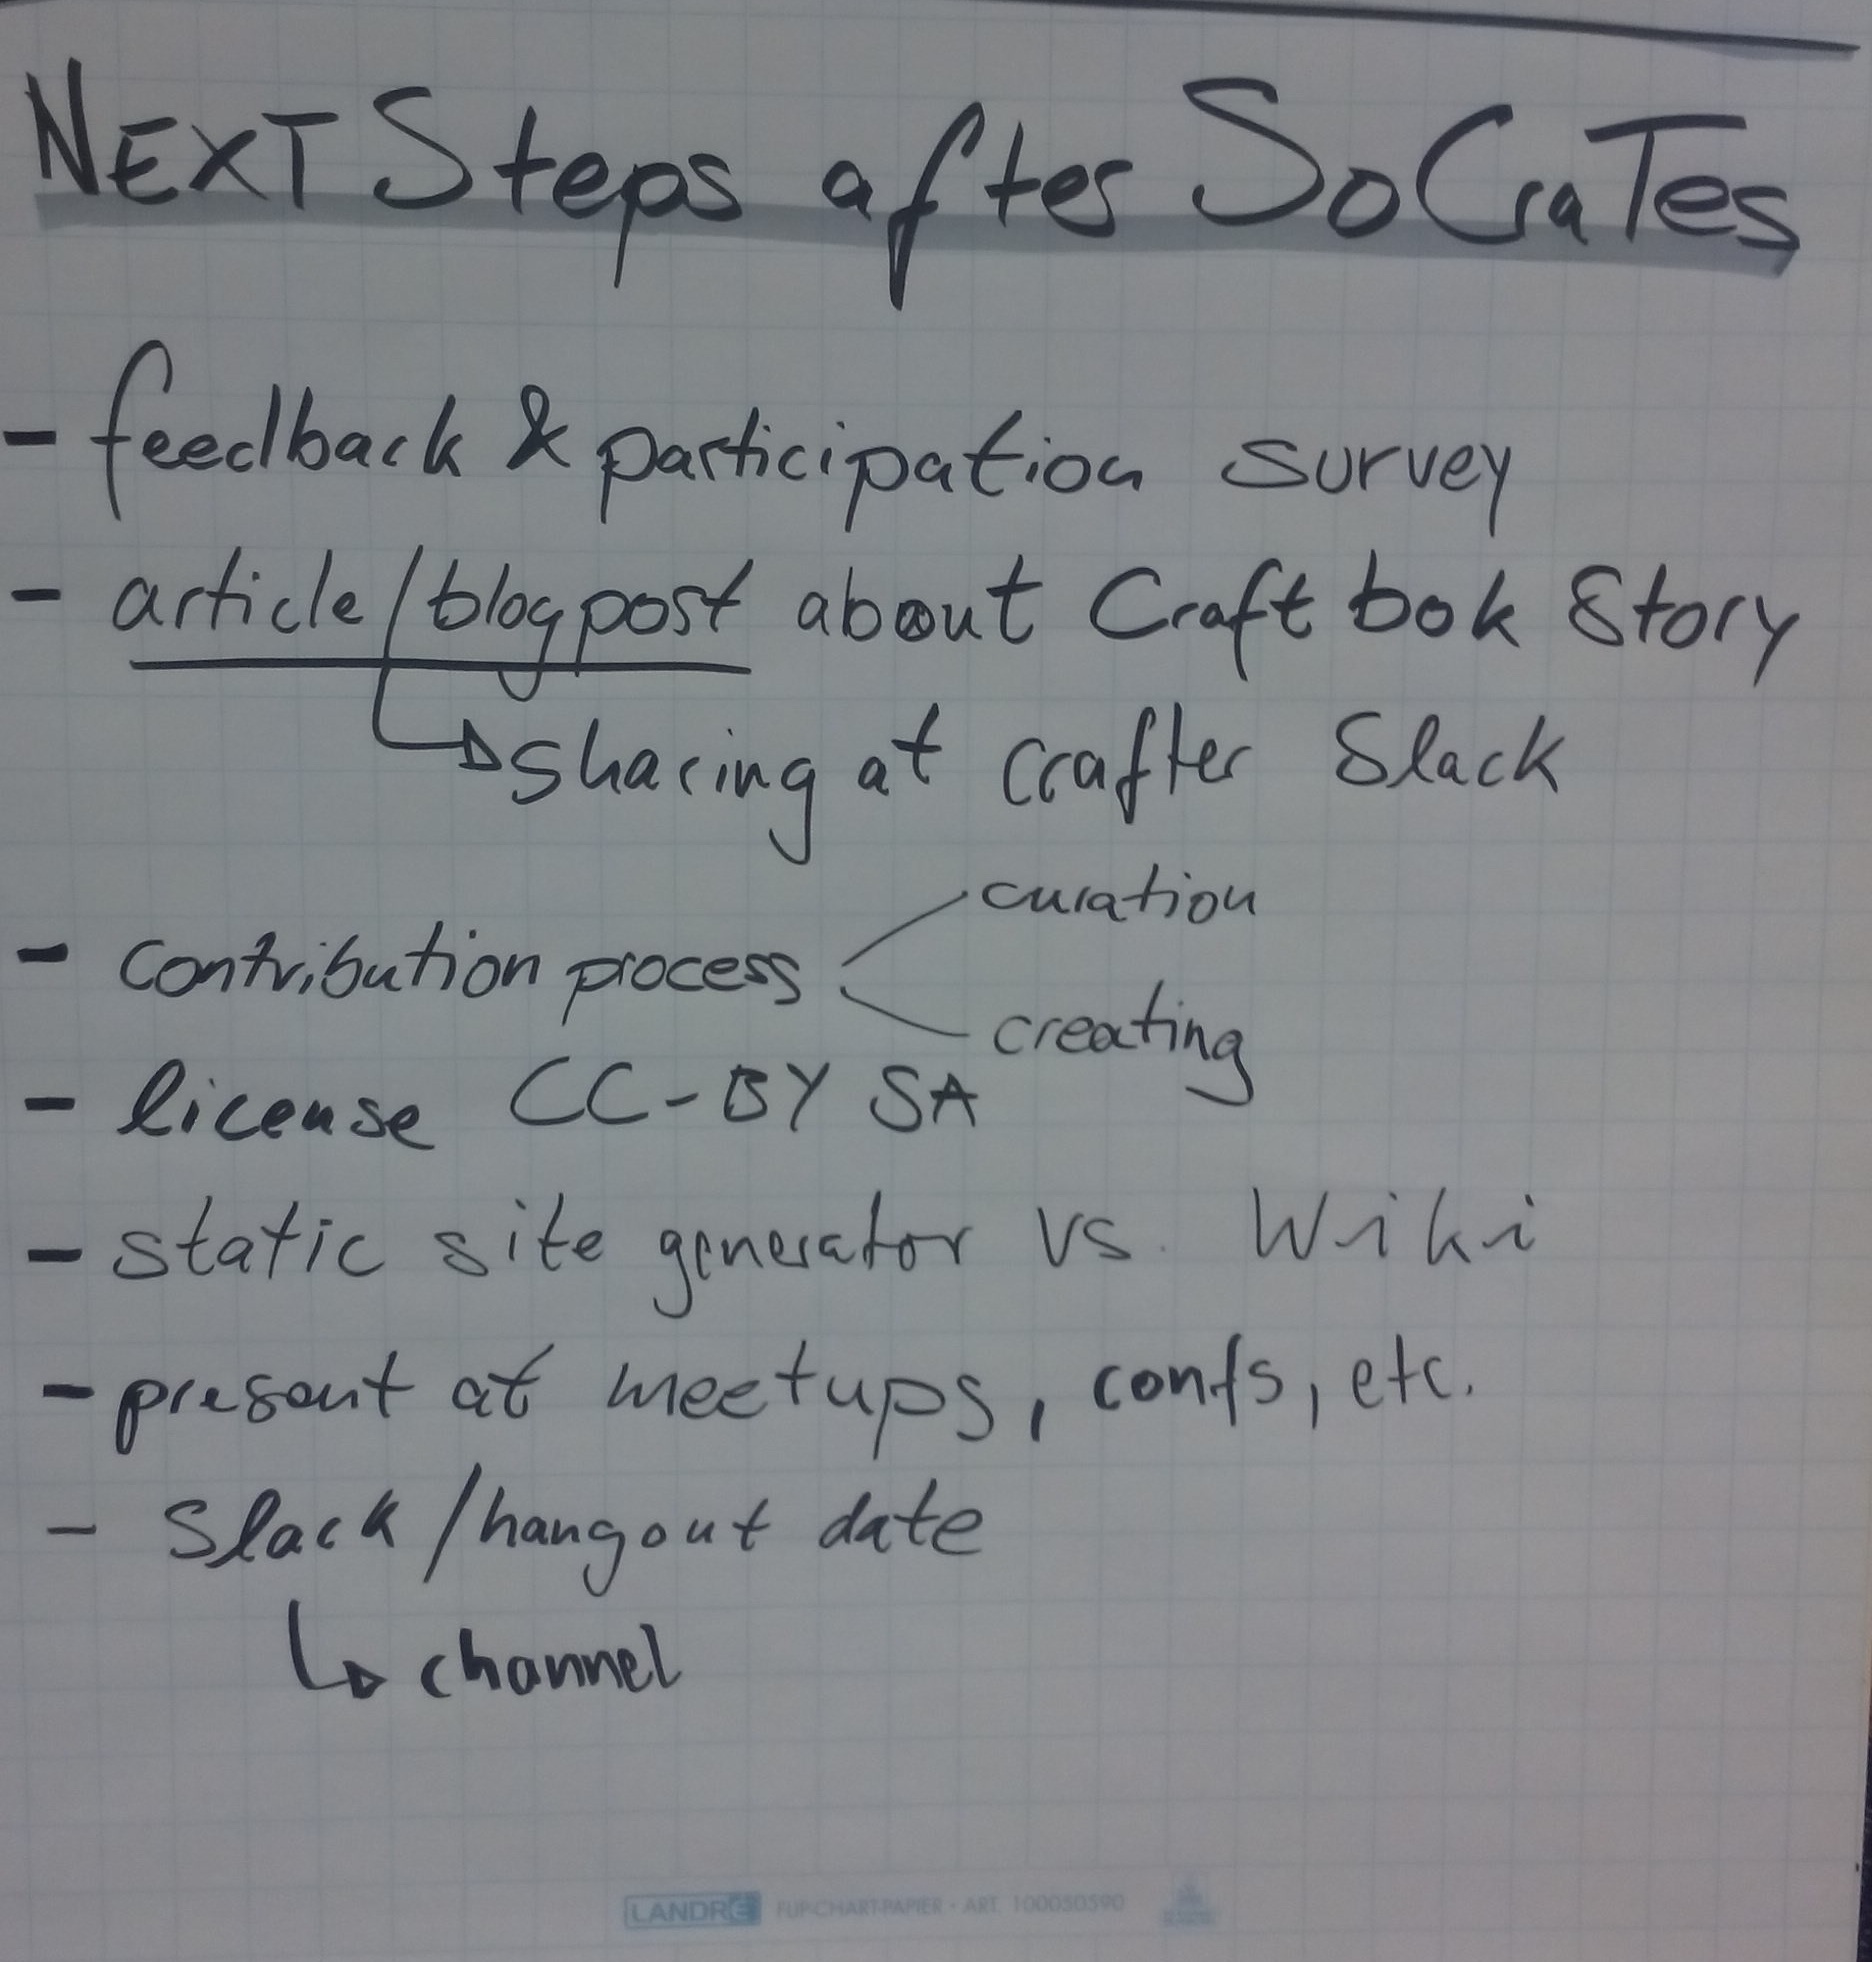 NEXT Steps after SoCraTes
- feedback & participation survey
- article/blogpost about Craft bok Story
sharing at crafter Slack
curation
- contribution process
creating
- license CC-BY SA
- static site generator vs. Wiki
- present at meetups, confs, etc.
- Slack/hangout date
channel
LANDRÉ FLIPCHART-PAPIER · ART. 100050590